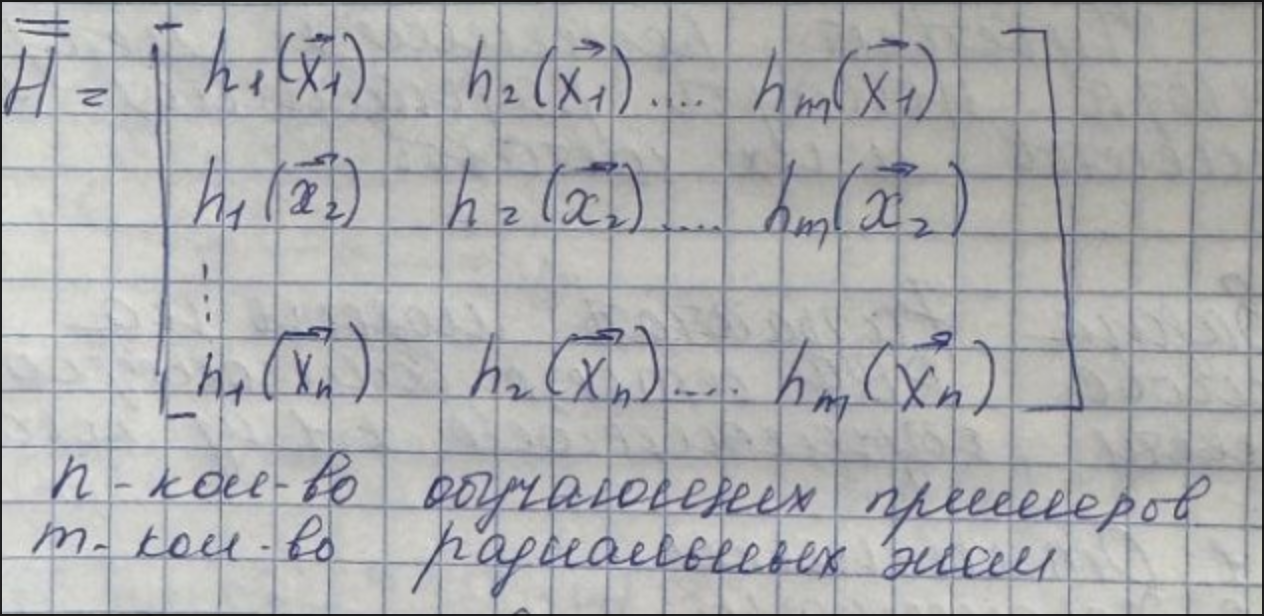 H = [ h₁(x⃗₁) h₂(x⃗₁) .... hₘ(x⃗₁) ]
h₁(x⃗₂) h₂(x⃗₂) .... hₘ(x⃗₂)
⋮
h₁(x⃗ₙ) h₂(x⃗ₙ) .... hₘ(x⃗ₙ)
n - кол-во обучающих примеров
m - кол-во радиальных элем